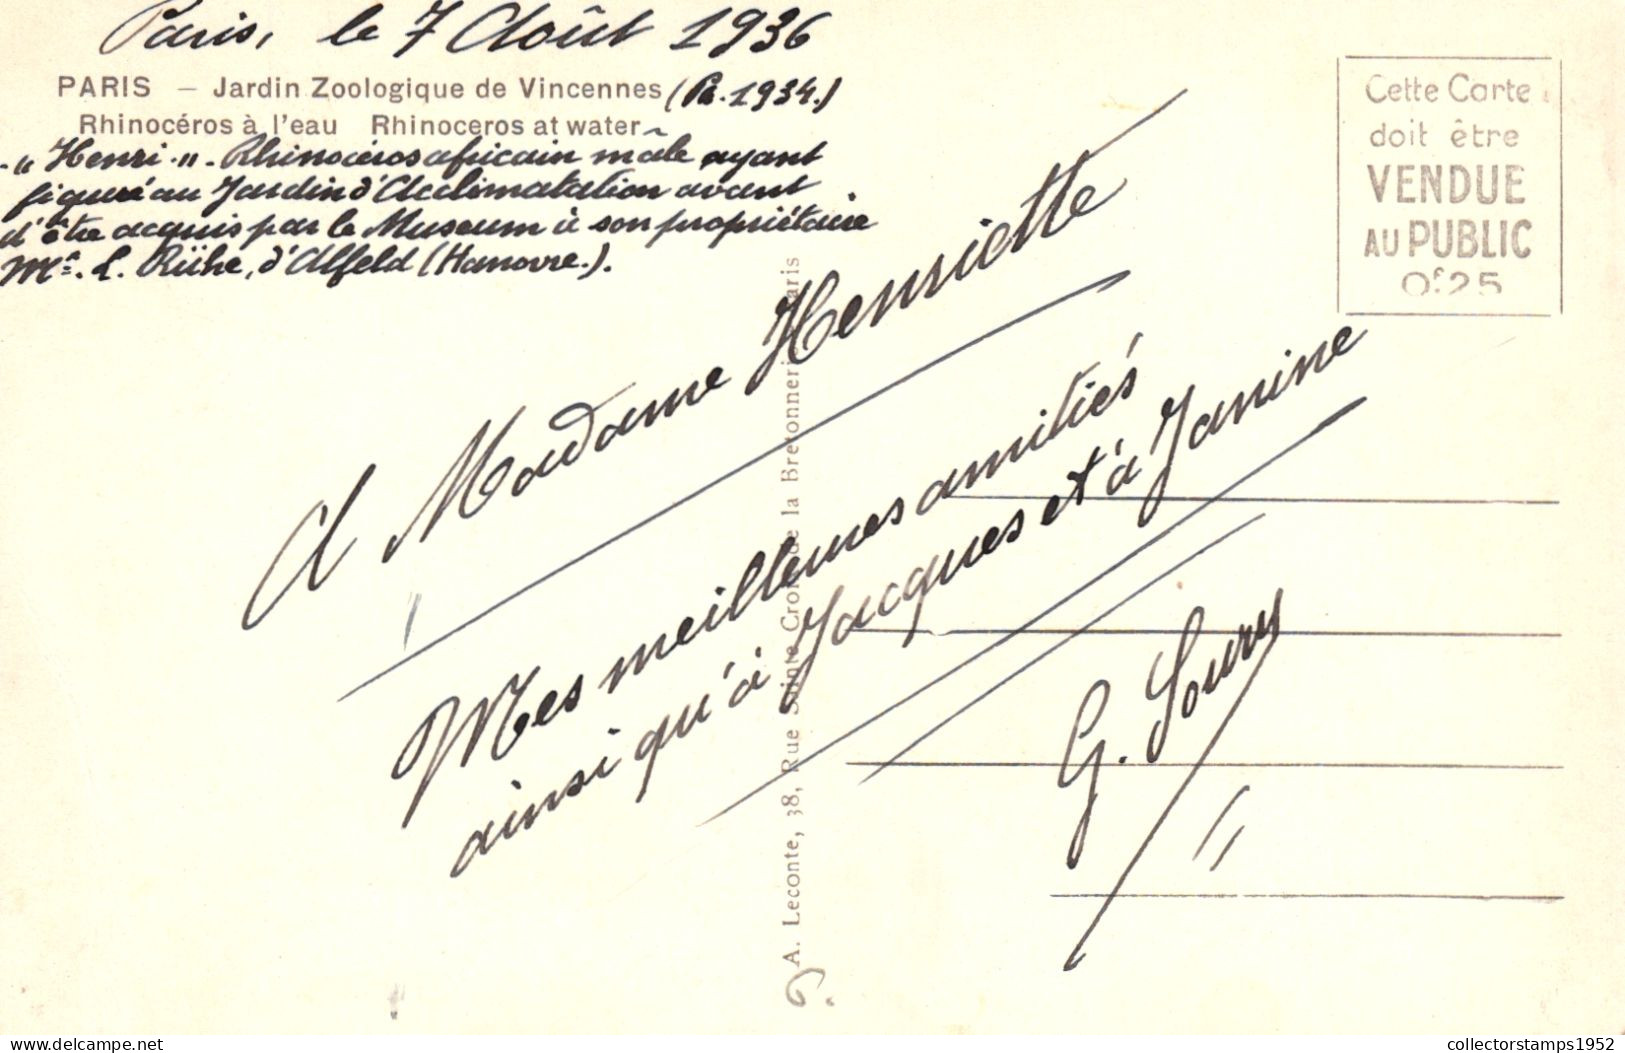 Paris, le 7 Août 1936
PARIS — Jardin Zoologique de Vincennes (Pa. 1934.)
Rhinocéros à l'eau Rhinoceros at water
-"Henri."- Rhinocéros africain mâle ayant
figuré au Jardin d'Acclimatation avant
d'être acquis par le Museum à son propriétaire
Mr. L. Rühe, d'Alfeld (Hanovre.).
Cette Carte
doit être
VENDUE
AU PUBLIC
0f25
A Madame Henriette
Mes meilleures amitiés
ainsi qu'à Jacques et à Janine
G. Soury
A. Leconte, 38, Rue Sainte Croix de la Bretonnerie Paris
www.delcampe.net
collectorstamps1952